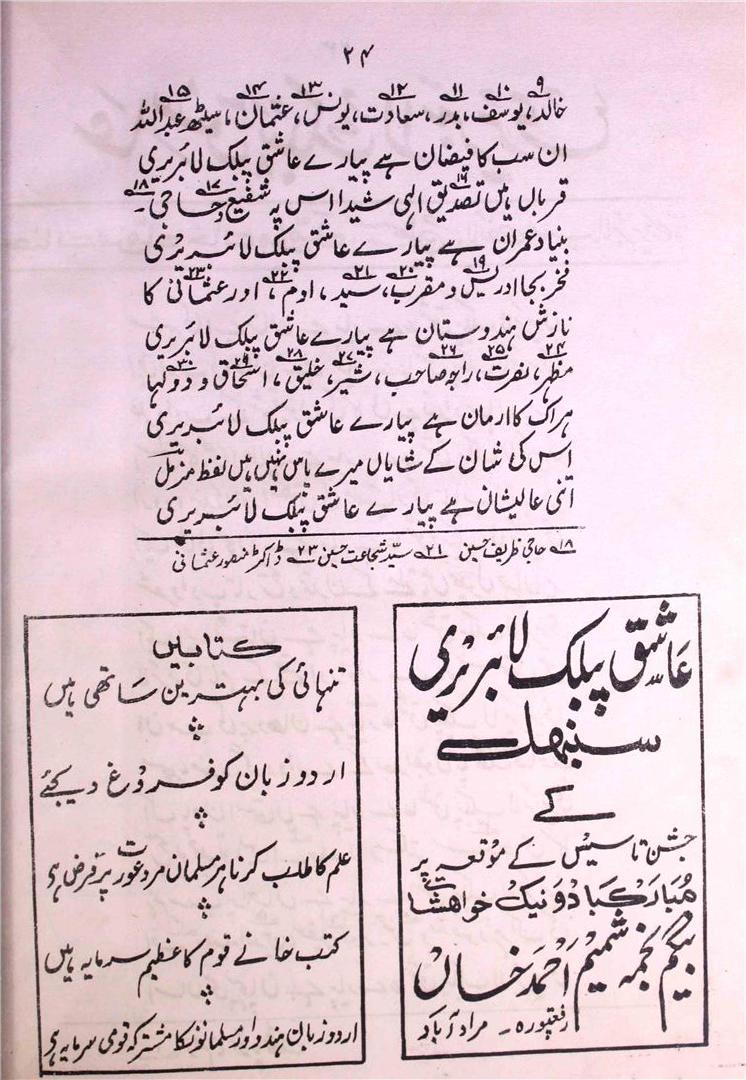 ۲۴
۹ ۱۰ ۱۱ ۱۲ ۱۳ ۱۴ ۱۵
خالد، یوسف، بدر، سعادت، یونس، عثمان، سیٹھ عبداللہ
ان سب کا فیضان ہے پیارے عاشق پبلک لائبریری
۱۶ ۱۷ ۱۸
قرباں ہیں تصدیق الٰہی شیدا اس پہ شفیع و حاجی۔
بنیاد عمران ہے پیارے عاشق پبلک لائبریری
۱۹ ۲۰ ۲۱ ۲۲ ۲۳
فخر بجا ادریس و مقرب، سید، اوم، اور عثمانی کا
نازش ہندوستان ہے پیارے عاشق پبلک لائبریری
۲۴ ۲۵ ۲۶ ۲۷ ۲۸ ۲۹ ۳۰
مظہر، نصرت، راجو صاحب، شیر، خلیق، اسحاق و دولہا
ہر اک کا ارمان ہے پیارے عاشق پبلک لائبریری
اس کی شان کے شایاں میرے پاس نہیں ہیں لفظ مزمل
اتنی عالیشان ہے پیارے عاشق پبلک لائبریری
۱۸ حاجی ظریف حسین ۲۱ سید شجاعت حسین ۲۳ ڈاکٹر منصور عثمانی
عاشق پبلک لائبریری
سنبھل
کے
جشن تاسیس کے موقعہ پر
مبارکباد و نیک خواہشات
بیگم نجمہ شمیم احمد خاں
رفعتپورہ۔ مرادآباد
کتابیں
تنہائی کی بہترین ساتھی ہیں
اردو زبان کو فروغ دیجئے
علم کا طلب کرنا ہر مسلمان مرد عورت پر فرض ہے
کتب خانے قوم کا عظیم سرمایہ ہیں
اردو زبان ہندو اور مسلمانوں کا مشترکہ قومی سرمایہ ہے